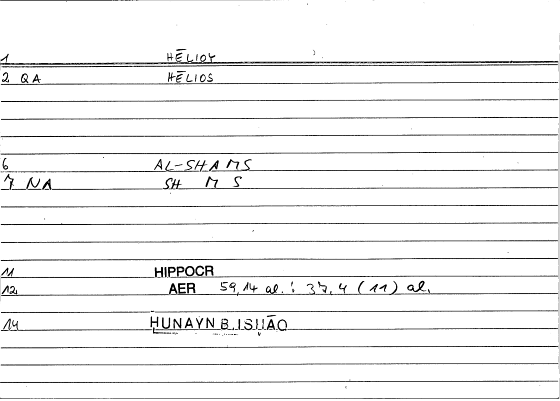 1 HĒLIOY
2 QA HĒLIOS
6 AL-SHAMS
7 NA SH M S
11 HIPPOCR
12 AER 59,14 al. : 37,4 (11) al.
14 HUNAYN B. ISḤĀQ